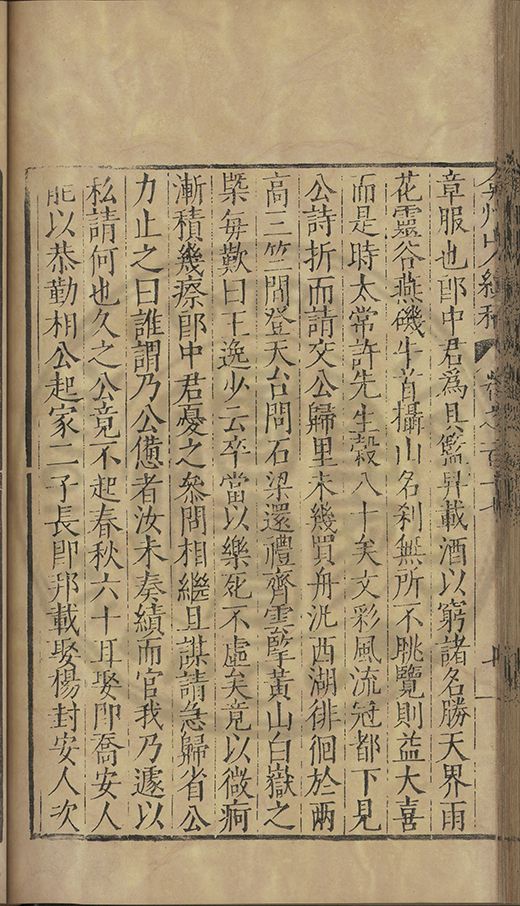 弇州山人續稿 卷之一百十七
章服也郎中君爲具籃舁載酒以窮諸名勝天界雨
花靈谷燕磯牛首攝山名刹無所不眺覽則益大喜
而是時太常許先生榖八十矣文彩風流冠都下見
公詩折而請交公歸里未幾買舟汎西湖徘徊於兩
高三竺間登天台問石梁還禮齊雲擥黃山白嶽之
槩每歎曰王逸少云卒當以樂死不虛矣竟以微痾
漸積幾瘵郎中君憂之參問相繼且謀請急歸省公
力止之曰誰謂乃公憊者汝未奏績而官我乃遽以
私請何也久之公竟不起春秋六十耳娶卽喬安人
能以恭勤相公起家二子長卽邦載娶楊封安人次